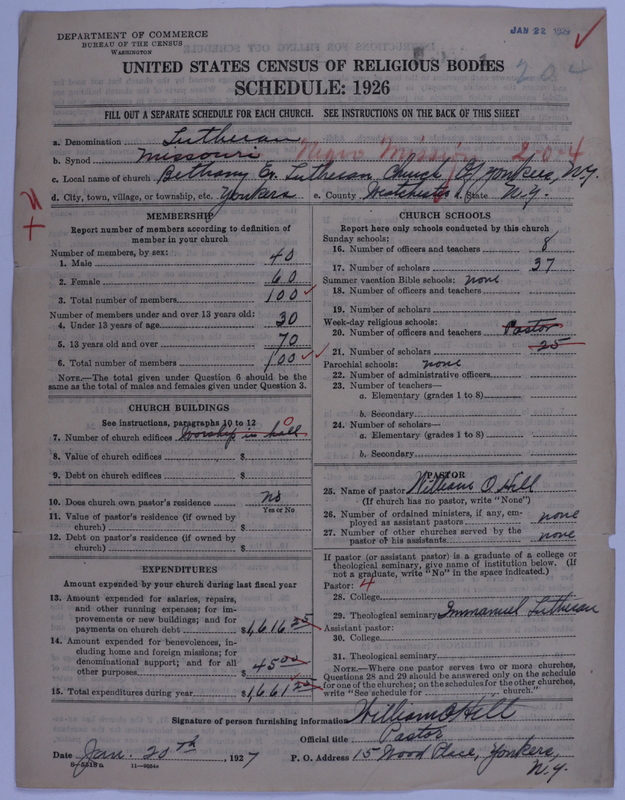 DEPARTMENT OF COMMERCE
BUREAU OF THE CENSUS
WASHINGTON
JAN 22
204
UNITED STATES CENSUS OF RELIGIOUS BODIES
SCHEDULE: 1926
FILL OUT A SEPARATE SCHEDULE FOR EACH CHURCH. SEE INSTRUCTIONS ON THE BACK OF THIS SHEET
a. Denomination Lutheran
b. Synod Missouri Negro Mission 204
c. Local name of church Bethany Ev. Lutheran Church Of Yonkers, N.Y.
d. City, town, village, or township, etc. Yonkers e. County Westchester f. State N.Y.
MEMBERSHIP
Report number of members according to definition of
member in your church
Number of members, by sex:
1. Male 40
2. Female 60
3. Total number of members 100
Number of members under and over 13 years old:
4. Under 13 years of age 30
5. 13 years old and over 70
6. Total number of members 100
NOTE.—The total given under Question 6 should be the
same as the total of males and females given under Question 3.
CHURCH BUILDINGS
See instructions, paragraphs 10 to 12
7. Number of church edifices Worship in hall 0
8. Value of church edifices $
9. Debt on church edifices $
10. Does church own pastor's residence no
Yes or No
11. Value of pastor's residence (if owned by
church) $
12. Debt on pastor's residence (if owned by
church) $
EXPENDITURES
Amount expended by your church during last fiscal year
13. Amount expended for salaries, repairs,
and other running expenses; for im-
provements or new buildings; and for
payments on church debt $1,616 25
14. Amount expended for benevolences, in-
cluding home and foreign missions; for
denominational support; and for all
other purposes $ 45 00
15. Total expenditures during year $1,661 25
CHURCH SCHOOLS
Report here only schools conducted by this church
Sunday schools:
16. Number of officers and teachers 8
17. Number of scholars 37
Summer vacation Bible schools: none
18. Number of officers and teachers
19. Number of scholars
Week-day religious schools:
20. Number of officers and teachers Pastor
21. Number of scholars 25
Parochial schools: none
22. Number of administrative officers
23. Number of teachers—
a. Elementary (grades 1 to 8)
b. Secondary
24. Number of scholars—
a. Elementary (grades 1 to 8)
b. Secondary
PASTOR
25. Name of pastor William O Hill
(If church has no pastor, write "None")
26. Number of ordained ministers, if any, em-
ployed as assistant pastors none
27. Number of other churches served by the
pastor or his assistants none
If pastor (or assistant pastor) is a graduate of a college or
theological seminary, give name of institution below. (If
not a graduate, write "No" in the space indicated.)
Pastor: 4
28. College
29. Theological seminary Immanuel Lutheran
Assistant pastor:
30. College
31. Theological seminary
NOTE.—Where one pastor serves two or more churches,
Questions 28 and 29 should be answered only on the schedule
for one of the churches; on the schedules for the other churches,
write "See schedule for church."
Signature of person furnishing information William O Hill
Official title Pastor
Date Jan. 20th, 1927 P. O. Address 15 Wood Place, Yonkers,
N.Y.